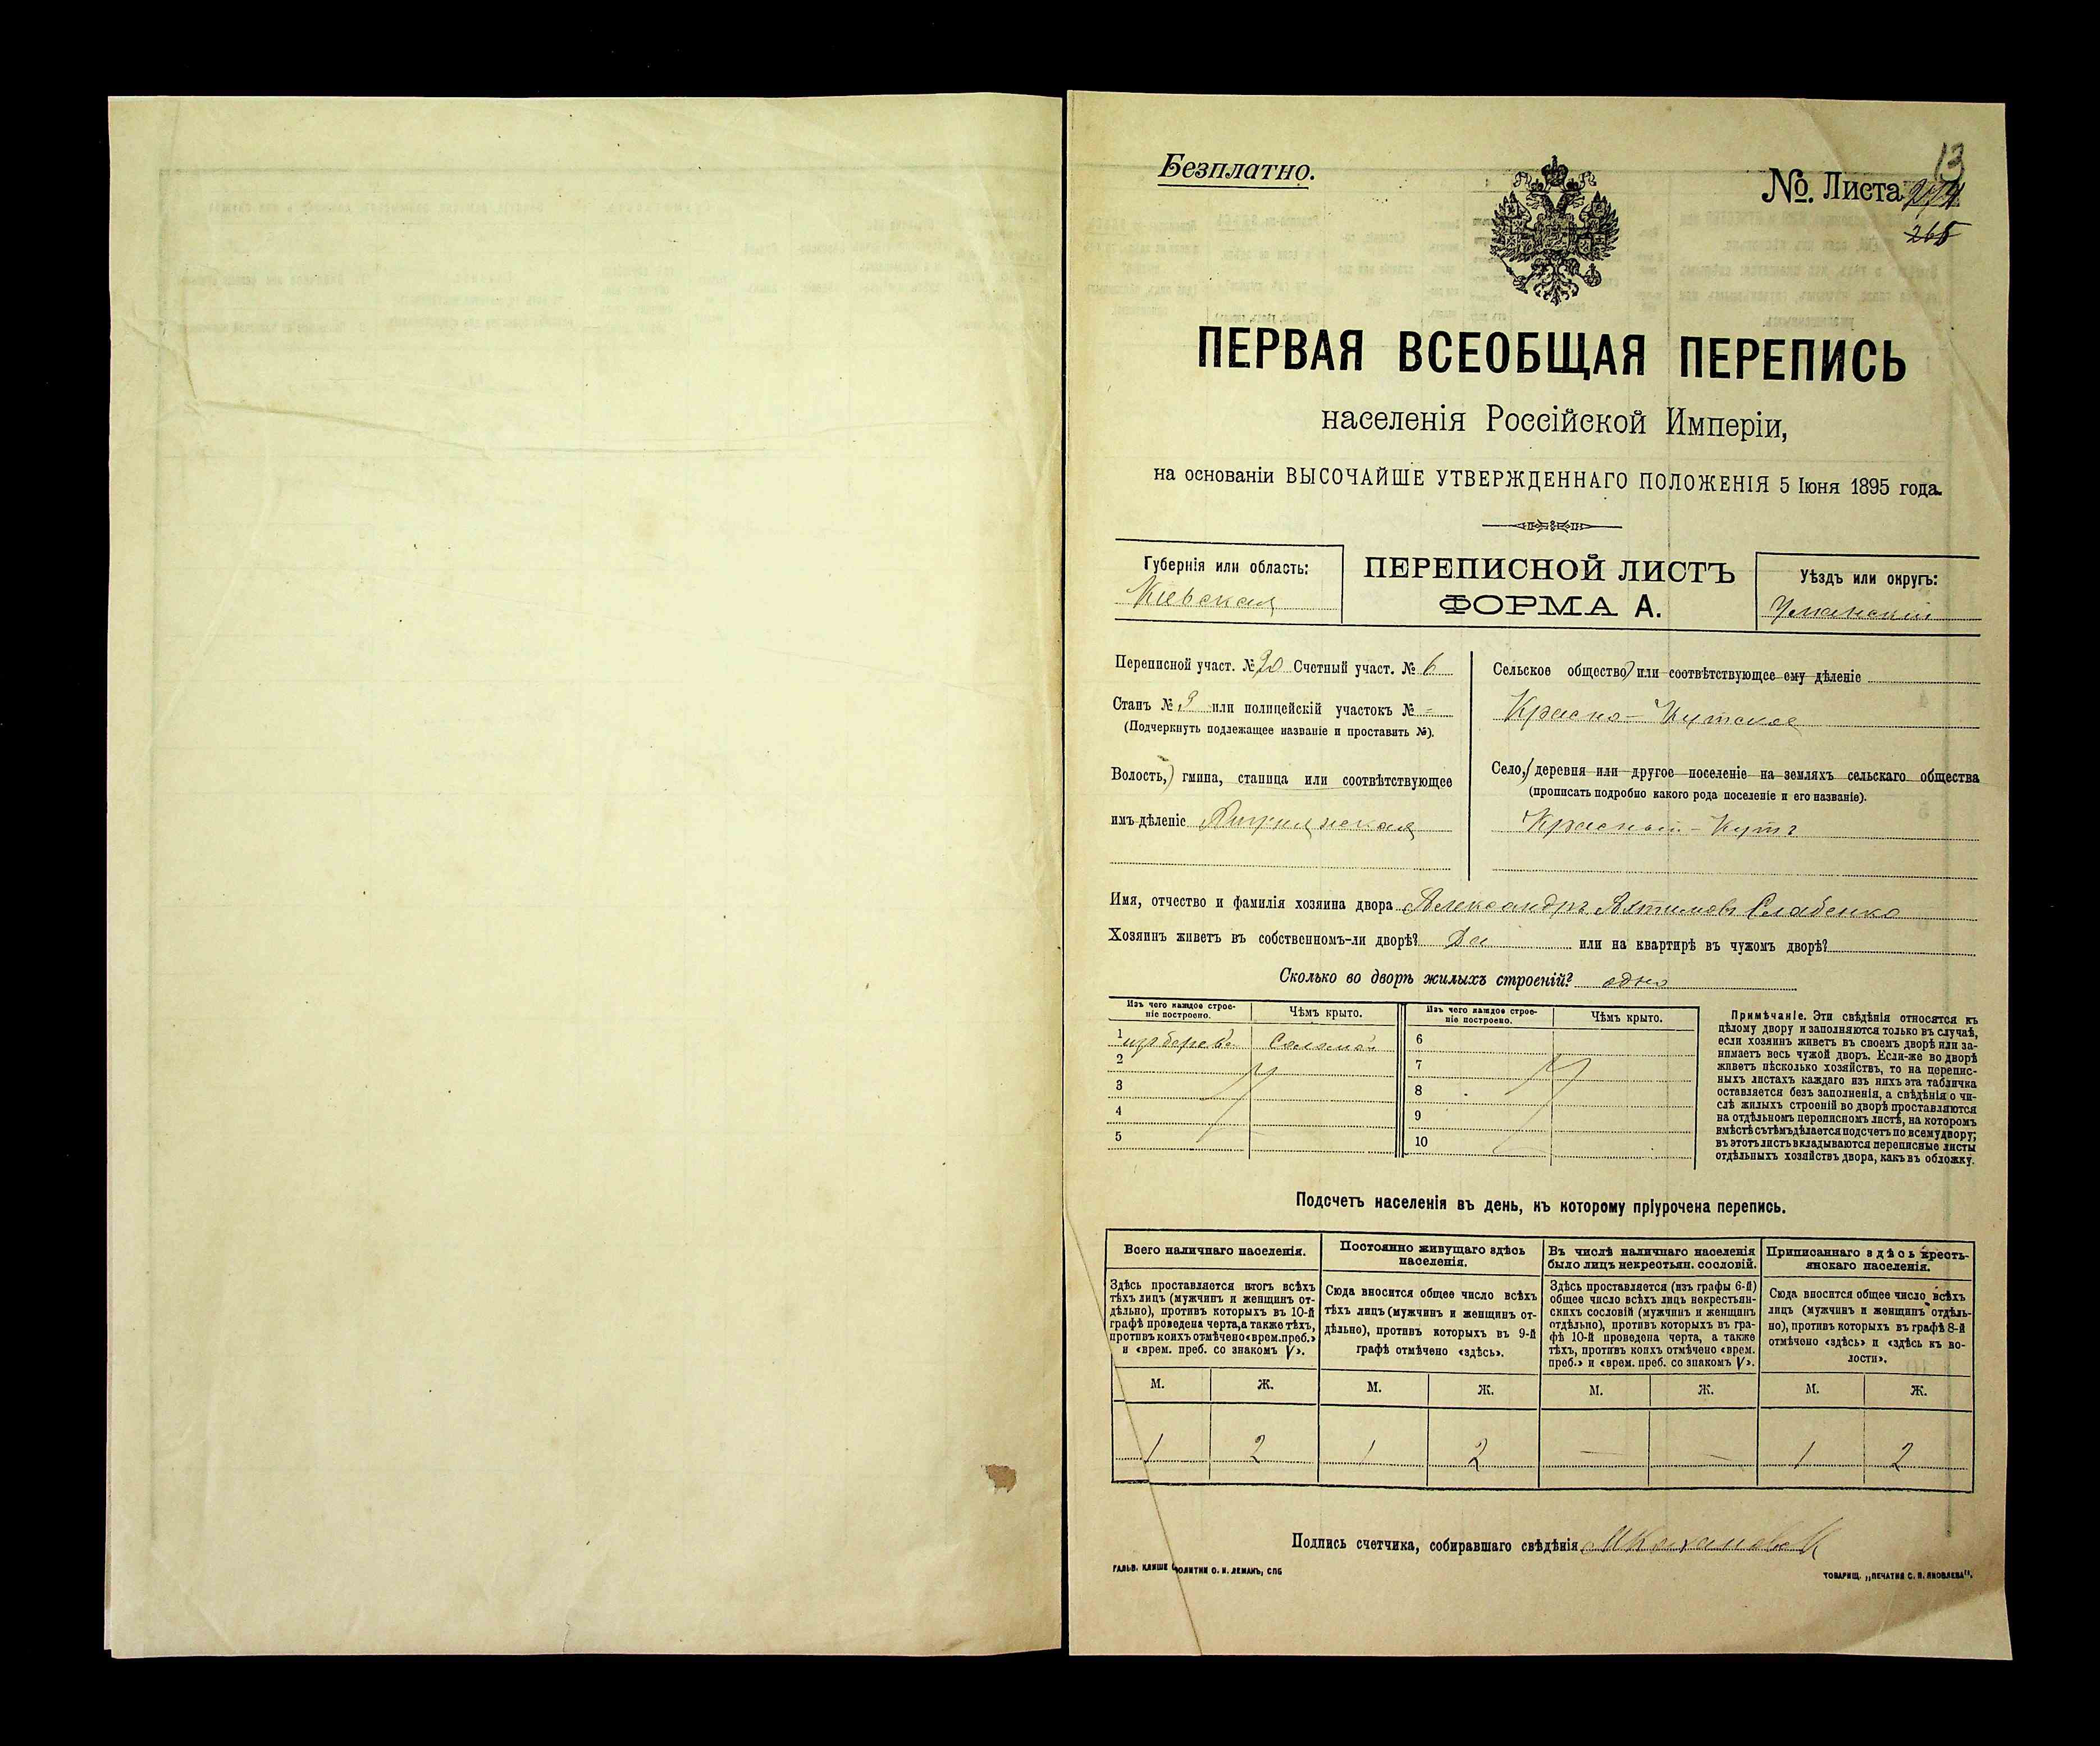 Безплатно.
№. Листа 274
13
265
ПЕРВАЯ ВСЕОБЩАЯ ПЕРЕПИСЬ
населенія Россійской Имперіи,
на основаніи ВЫСОЧАЙШЕ УТВЕРЖДЕННАГО ПОЛОЖЕНІЯ 5 Іюня 1895 года.
Губернія или область:
Кіевская
ПЕРЕПИСНОЙ ЛИСТЪ
ФОРМА А.
Уѣздъ или округъ:
Уманскій
Переписной участ. № 20 Счетный участ. № 6
Станъ № 3 или полицейскій участокъ № -
(Подчеркнуть подлежащее названіе и проставить №).
Волость, гмина, станица или соотвѣтствующее
имъ дѣленіе
Сельское общество или соотвѣтствующее ему дѣленіе
Красно-Кутское
Село, деревня или другое поселеніе на земляхъ сельскаго общества
(прописать подробно какого рода поселеніе и его названіе).
Красный-Кутъ
Имя, отчество и фамилія хозяина двора Александръ Слабенко
Хозяинъ живетъ въ собственномъ-ли дворѣ? Да или на квартирѣ въ чужомъ дворѣ?
Сколько во дворѣ жилыхъ строеній? одно
Изъ чего каждое строе-
ніе построено.
Чѣмъ крыто.
1 изъ дерева Соломой
2
3
4
5
Изъ чего каждое строе-
ніе построено.
Чѣмъ крыто.
6
7
8
9
10
Примѣчаніе. Эти свѣдѣнія относятся къ
цѣлому двору и заполняются только въ случаѣ,
если хозяинъ живетъ въ своемъ дворѣ или за-
нимаетъ весь чужой дворъ. Если-же во дворѣ
живетъ нѣсколько хозяйствъ, то на перепис-
ныхъ листахъ каждаго изъ нихъ эта табличка
оставляется безъ заполненія, а свѣдѣнія о чи-
слѣ жилыхъ строеній во дворѣ проставляются
на отдѣльномъ переписномъ листѣ, на которомъ
вмѣстѣ съ тѣмъ дѣлается подсчетъ по всему двору;
въ этотъ листъ вкладываются переписные листы
отдѣльныхъ хозяйствъ двора, какъ въ обложку.
Подсчетъ населенія въ день, къ которому пріурочена перепись.
Всего наличнаго населенія.
Здѣсь проставляется итогъ всѣхъ
тѣхъ лицъ (мужчинъ и женщинъ от-
дѣльно), противъ которыхъ въ 10-й
графѣ проведена черта, а также тѣхъ,
противъ коихъ отмѣчено «врем. преб.»
и «врем. преб. со знакомъ V».
М. Ж.
1 2
Постоянно живущаго здѣсь
населенія.
Сюда вносится общее число всѣхъ
тѣхъ лицъ (мужчинъ и женщинъ от-
дѣльно), противъ которыхъ въ 9-й
графѣ отмѣчено «здѣсь».
М. Ж.
1 2
Въ числѣ наличнаго населенія
было лицъ некрестьян. сословій.
Здѣсь проставляется (изъ графы 6-й)
общее число всѣхъ лицъ некрестьян-
скихъ сословій (мужчинъ и женщинъ
отдѣльно), противъ которыхъ въ гра-
фѣ 10-й проведена черта, а также
тѣхъ, противъ коихъ отмѣчено «врем.
преб.» и «врем. преб. со знакомъ V».
М. Ж.
— —
Приписаннаго здѣсь кресть-
янскаго населенія.
Сюда вносится общее число всѣхъ
лицъ (мужчинъ и женщинъ отдѣль-
но), противъ которыхъ въ графѣ 8-й
отмѣчено «здѣсь» и «здѣсь къ во-
лости».
М. Ж.
1 2
Подпись счетчика, собиравшаго свѣдѣнія
ТОВАРИЩ. „ПЕЧАТНЯ С. П. ЯКОВЛЕВА“.